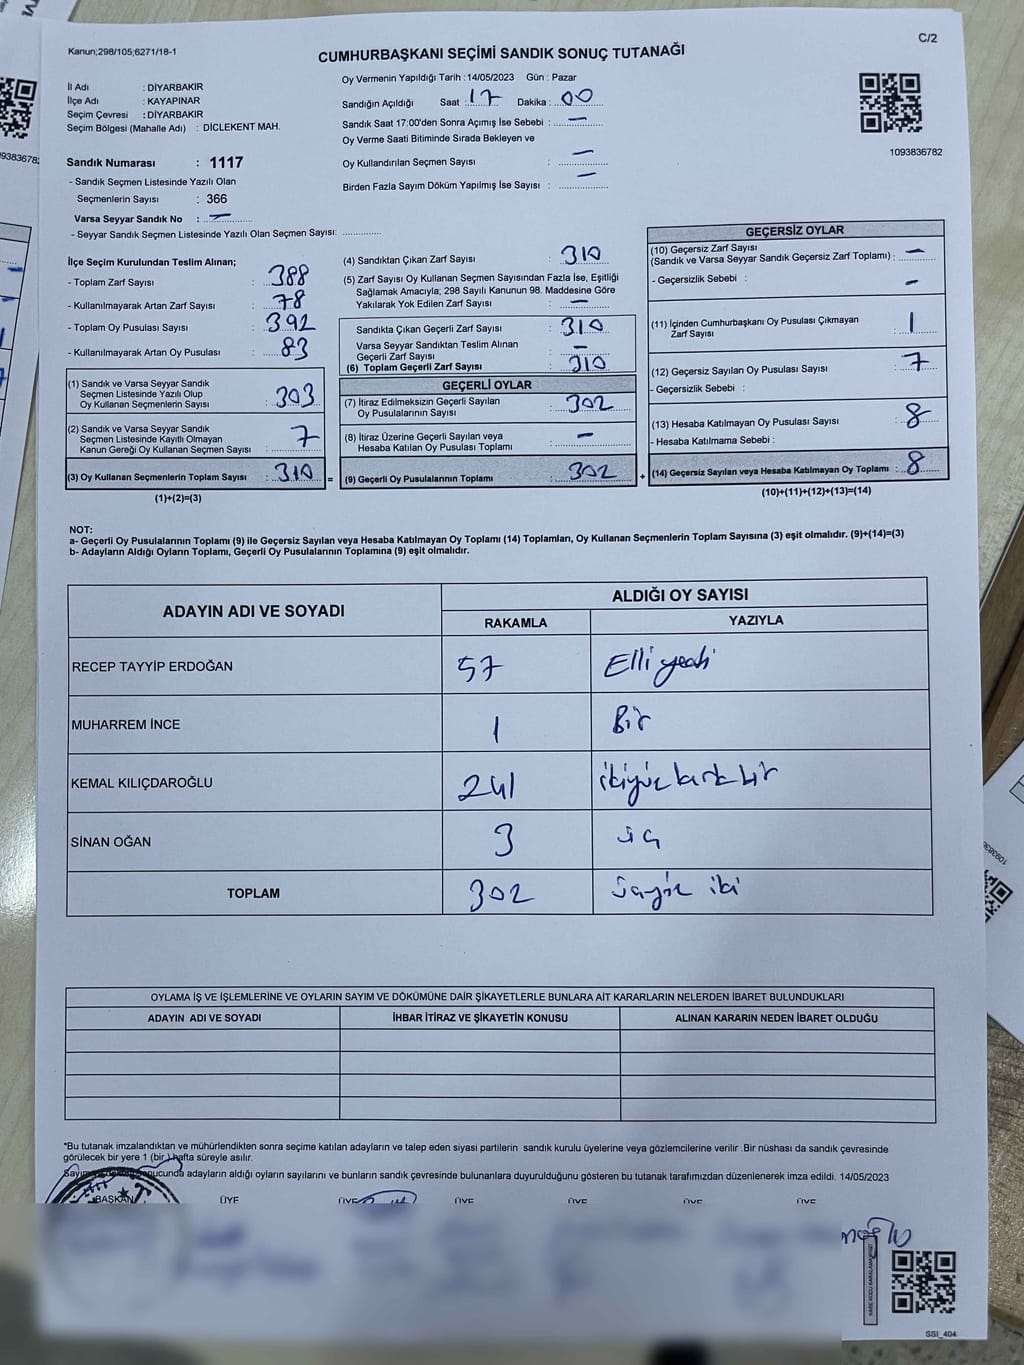 Kanun;298/105;6271/18-1
C/2
CUMHURBAŞKANI SEÇİMİ SANDIK SONUÇ TUTANAĞI
İl Adı : DİYARBAKIR
İlçe Adı : KAYAPINAR
Seçim Çevresi : DİYARBAKIR
Seçim Bölgesi (Mahalle Adı) : DİCLEKENT MAH.
Sandık Numarası : 1117
- Sandık Seçmen Listesinde Yazılı Olan
Seçmenlerin Sayısı : 366
Varsa Seyyar Sandık No : —
- Seyyar Sandık Seçmen Listesinde Yazılı Olan Seçmen Sayısı:
Oy Vermenin Yapıldığı Tarih : 14/05/2023 Gün : Pazar
Sandığın Açıldığı Saat : 17 Dakika : 00
Sandık Saat 17:00'den Sonra Açımış İse Sebebi : —
Oy Verme Saati Bitiminde Sırada Bekleyen ve
Oy Kullandırılan Seçmen Sayısı : —
Birden Fazla Sayım Döküm Yapılmış İse Sayısı : —
1093836782
İlçe Seçim Kurulundan Teslim Alınan;
- Toplam Zarf Sayısı : 388
- Kullanılmayarak Artan Zarf Sayısı : 78
- Toplam Oy Pusulası Sayısı : 392
- Kullanılmayarak Artan Oy Pusulası : 83
(1) Sandık ve Varsa Seyyar Sandık
Seçmen Listesinde Yazılı Olup
Oy Kullanan Seçmenlerin Sayısı : 303
(2) Sandık ve Varsa Seyyar Sandık
Seçmen Listesinde Kayıtlı Olmayan
Kanun Gereği Oy Kullanan Seçmen Sayısı : 7
(3) Oy Kullanan Seçmenlerin Toplam Sayısı : 310 =
(1)+(2)=(3)
(4) Sandıktan Çıkan Zarf Sayısı : 310
(5) Zarf Sayısı Oy Kullanan Seçmen Sayısından Fazla İse, Eşitliği
Sağlamak Amacıyla; 298 Sayılı Kanunun 98. Maddesine Göre
Yakılarak Yok Edilen Zarf Sayısı : —
Sandıkta Çıkan Geçerli Zarf Sayısı : 310
Varsa Seyyar Sandıktan Teslim Alınan
Geçerli Zarf Sayısı : —
(6) Toplam Geçerli Zarf Sayısı : 310
GEÇERLİ OYLAR
(7) İtiraz Edilmeksizin Geçerli Sayılan
Oy Pusulalarının Sayısı : 302
(8) İtiraz Üzerine Geçerli Sayılan veya
Hesaba Katılan Oy Pusulası Toplamı : —
(9) Geçerli Oy Pusulalarının Toplamı : 302 +
GEÇERSİZ OYLAR
(10) Geçersiz Zarf Sayısı
(Sandık ve Varsa Seyyar Sandık Geçersiz Zarf Toplamı) : —
- Geçersizlik Sebebi : —
(11) İçinden Cumhurbaşkanı Oy Pusulası Çıkmayan
Zarf Sayısı : 1
(12) Geçersiz Sayılan Oy Pusulası Sayısı : 7
- Geçersizlik Sebebi :
(13) Hesaba Katılmayan Oy Pusulası Sayısı : 8
- Hesaba Katılmama Sebebi :
(14) Geçersiz Sayılan veya Hesaba Katılmayan Oy Toplamı : 8
(10)+(11)+(12)+(13)=(14)
NOT:
a- Geçerli Oy Pusulalarının Toplamı (9) ile Geçersiz Sayılan veya Hesaba Katılmayan Oy Toplamı (14) Toplamları, Oy Kullanan Seçmenlerin Toplam Sayısına (3) eşit olmalıdır. (9)+(14)=(3)
b- Adayların Aldığı Oyların Toplamı, Geçerli Oy Pusulalarının Toplamına (9) eşit olmalıdır.
ADAYIN ADI VE SOYADI
ALDIĞI OY SAYISI
RAKAMLA YAZIYLA
RECEP TAYYİP ERDOĞAN 57 Elli yedi
MUHARREM İNCE 1 Bir
KEMAL KILIÇDAROĞLU 241 ikiyüz kırk bir
SİNAN OĞAN 3 üç
TOPLAM 302 üçyüz iki
OYLAMA İŞ VE İŞLEMLERİNE VE OYLARIN SAYIM VE DÖKÜMÜNE DAİR ŞİKAYETLERLE BUNLARA AİT KARARLARIN NELERDEN İBARET BULUNDUKLARI
ADAYIN ADI VE SOYADI İHBAR İTİRAZ VE ŞİKAYETİN KONUSU ALINAN KARARIN NEDEN İBARET OLDUĞU
*Bu tutanak imzalandıktan ve mühürlendikten sonra seçime katılan adayların ve talep eden siyasi partilerin sandık kurulu üyelerine veya gözlemcilerine verilir. Bir nüshası da sandık çevresinde
görülecek bir yere 1 (bir) hafta süreyle asılır.
adayların aldığı oyların sayılarını ve bunların sandık çevresinde bulunanlara duyurulduğunu gösteren bu tutanak tarafımızdan düzenlenerek imza edildi. 14/05/2023
BAŞKAN ÜYE ÜYE ÜYE ÜYE ÜYE ÜYE
SSI_404